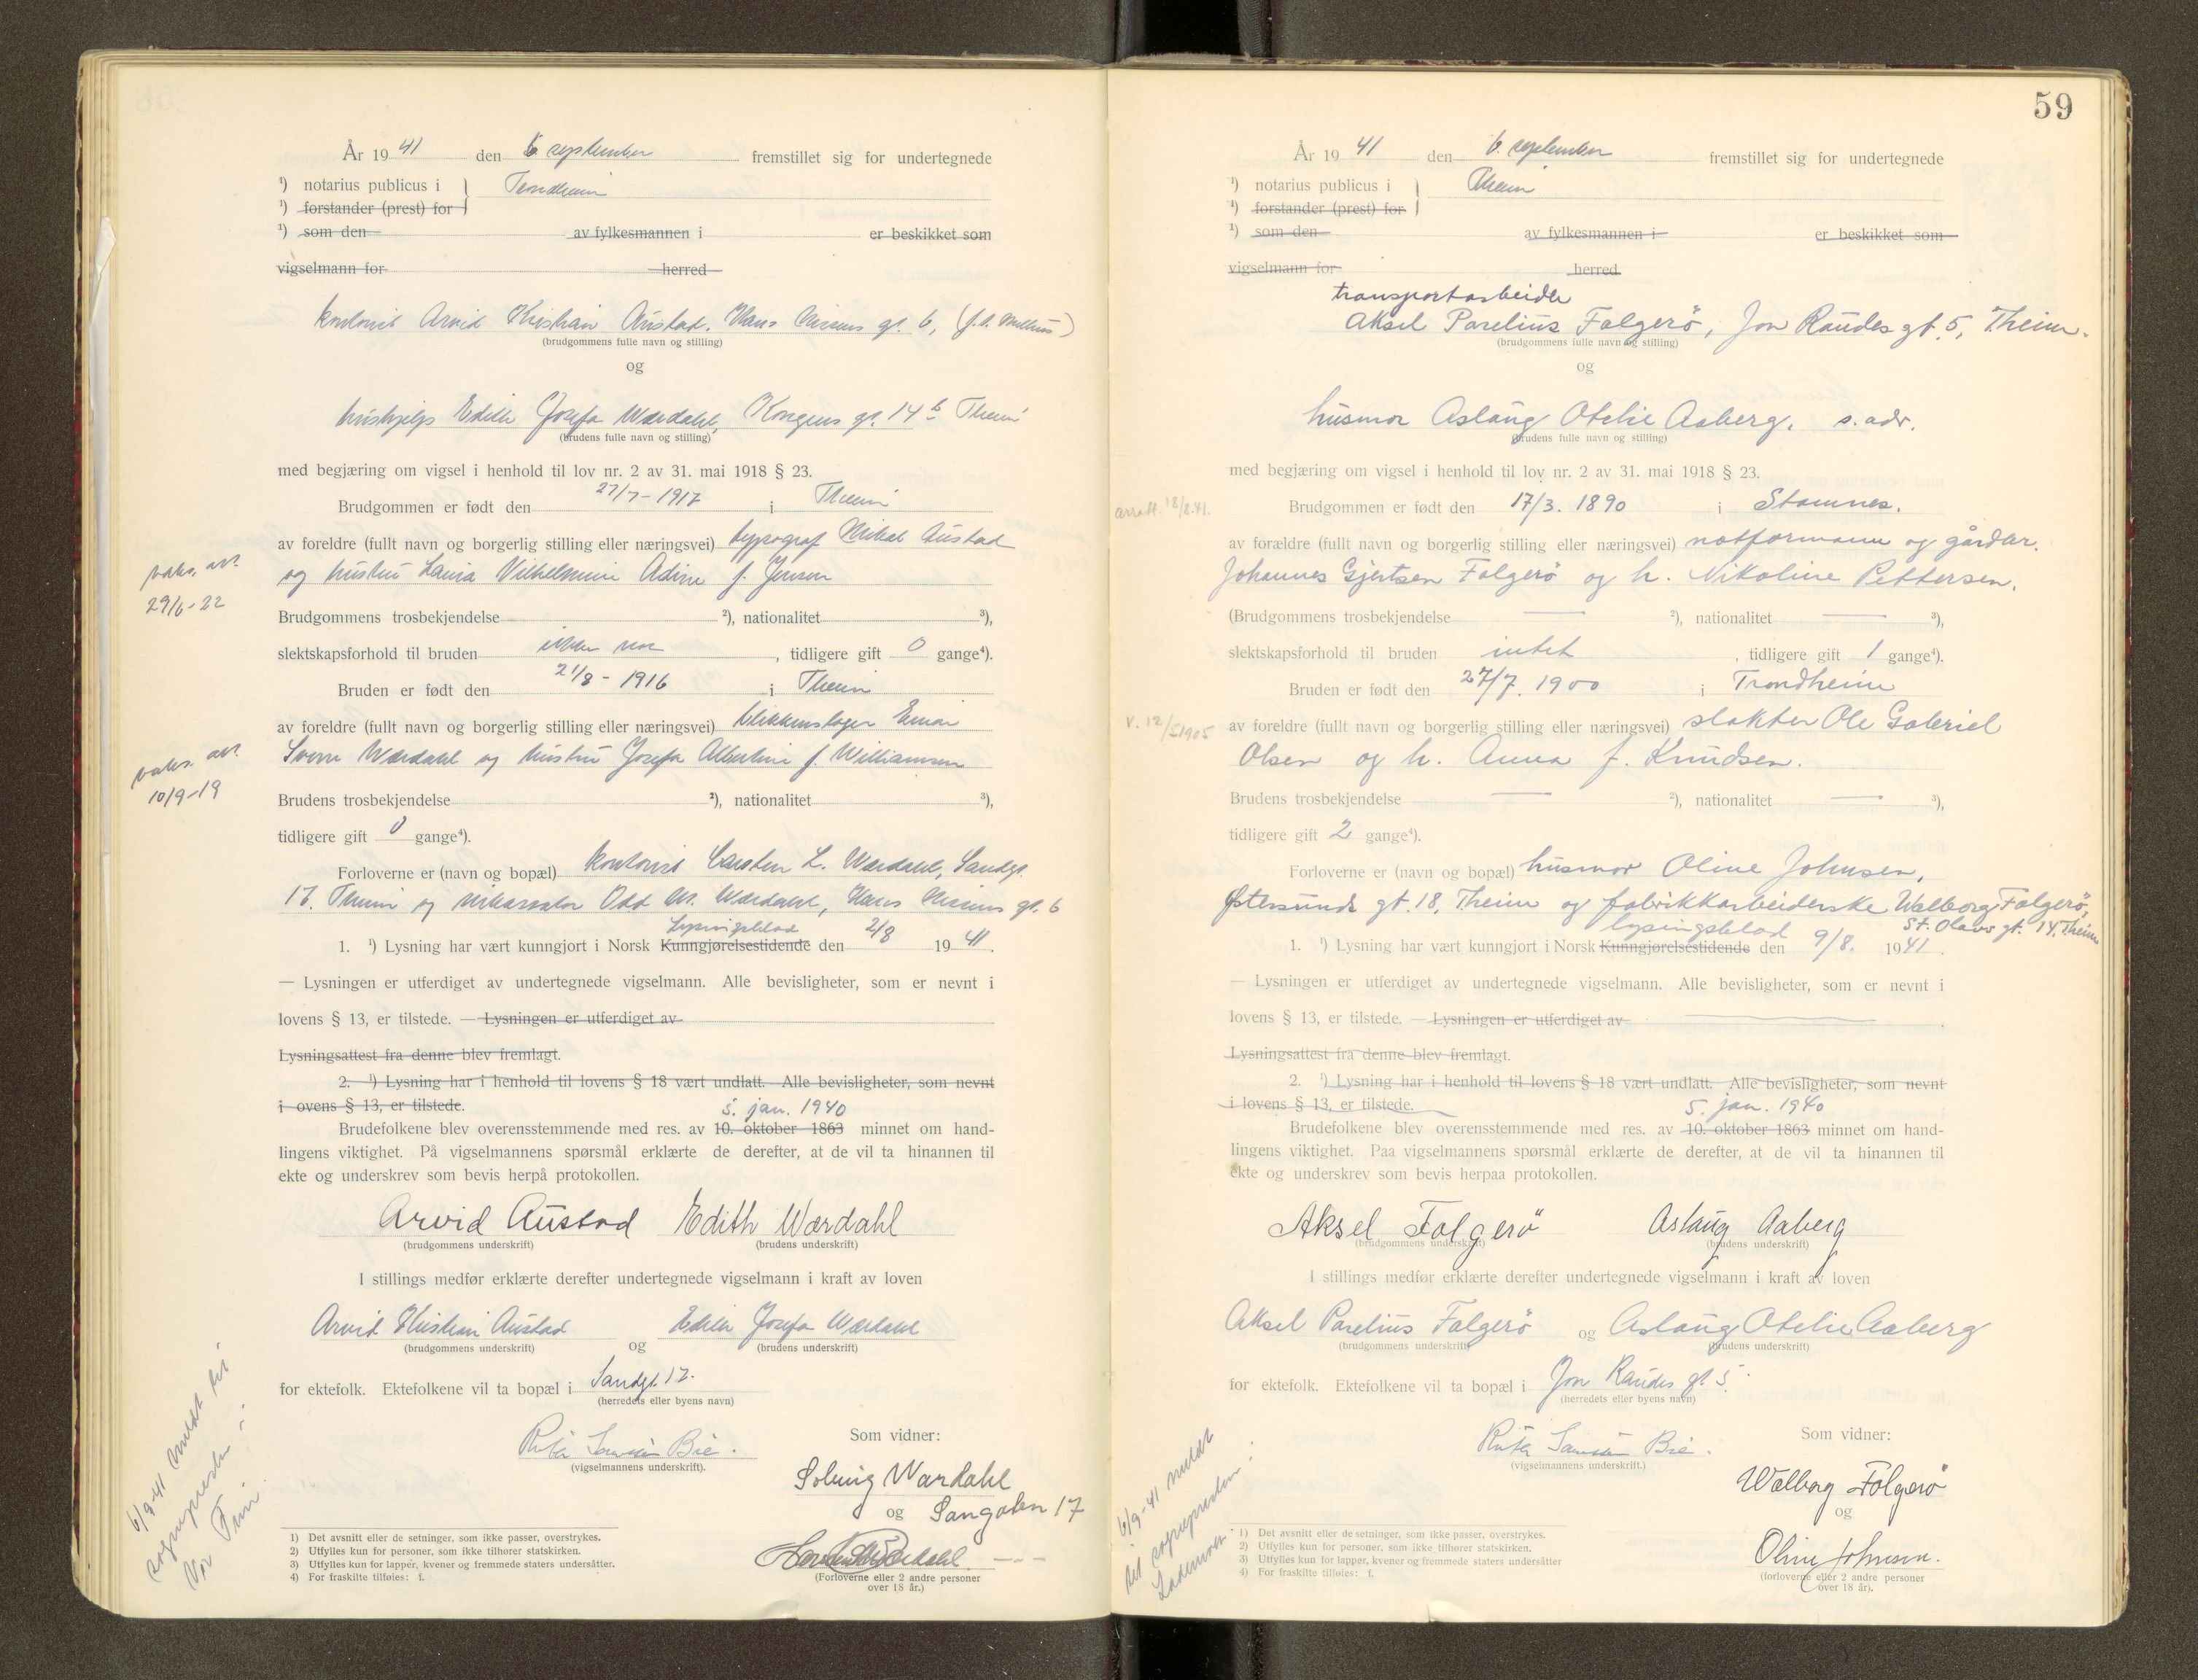 År 1941 den 6. september fremstillet sig for undertegnede
¹) notarius publicus i Trondheim
¹) forstander (prest) for
¹) som den av fylkesmannen i er beskikket som
vigselmann for herred
kontorist Arvid Kristian Austad. Hans Nissens gt. 6,
(brudgommens fulle navn og stilling)
og
hushjelp Edith Josefa Wærdahl, Kongens gt. 14ᵇ Theim
(brudens fulle navn og stilling)
med begjæring om vigsel i henhold til lov nr. 2 av 31. mai 1918 § 23.
Brudgommen er født den 27/7-1917 i Theim
av foreldre (fullt navn og borgerlig stilling eller næringsvei) typograf Mikal Austad
og hustru Laura Vilhelmine Adine f. Jensen
vaks. att.
29/6-22
Brudgommens trosbekjendelse ²), nationalitet ³),
slektskapsforhold til bruden ikke noe, tidligere gift 0 gange⁴).
Bruden er født den 21/8-1916 i Theim
av foreldre (fullt navn og borgerlig stilling eller næringsvei) blikkenslager Einar
Sverre Wærdahl og hustru Josefa Albertine f. Williamsen
vaks. att.
10/9-19
Brudens trosbekjendelse ²), nationalitet ³),
tidligere gift 0 gange⁴).
Forloverne er (navn og bopæl) kontorist Carsten L. Wærdahl, Sandgt.
17. Theim og Odd M. Wærdahl, Hans Nissens gt. 6
Lysingsblad
1. ¹) Lysning har vært kunngjort i Norsk Kunngjørelsestidende den 2/8 1941.
— Lysningen er utferdiget av undertegnede vigselmann. Alle bevisligheter, som er nevnt i
lovens § 13, er tilstede. — Lysningen er utferdiget av
Lysningsattest fra denne blev fremlagt.
2. ¹) Lysning har i henhold til lovens § 18 vært undlatt. Alle bevisligheter, som nevnt
i ovens § 13, er tilstede.
5. jan. 1940
Brudefolkene blev overensstemmende med res. av 10. oktober 1863 minnet om hand-
lingens viktighet. På vigselmannens spørsmål erklærte de derefter, at de vil ta hinannen til
ekte og underskrev som bevis herpå protokollen.
Arvid Austad Edith Wærdahl
(brudgommens underskrift) (brudens underskrift)
I stillings medfør erklærte derefter undertegnede vigselmann i kraft av loven
Arvid Kristian Austad og Edith Josefa Wærdahl
(brudgommens underskrift) (brudens underskrift)
for ektefolk. Ektefolkene vil ta bopæl i Sandgt. 17.
(herredets eller byens navn)
Bie.
(vigselmannens underskrift).
Som vidner:
Solveig Wærdahl
og Sangaten 17
Wærdahl.
(Forloverne eller 2 andre personer
over 18 år.)
6/9-41 meldt til
sognepresten i
Vor Frue
1) Det avsnitt eller de setninger, som ikke passer, overstrykes.
2) Utfylles kun for personer, som ikke tilhører statskirken.
3) Utfylles kun for lapper, kvener og fremmede staters undersåtter.
4) For fraskilte tilføies: f.
59
År 1941 den 6. september fremstillet sig for undertegnede
¹) notarius publicus i Theim
¹) forstander (prest) for
¹) som den av fylkesmannen i er beskikket som
vigselmann for herred
transportarbeider
Aksel Parelius Folgerö, Jon Raudes gt. 5, Theim.
(brudgommens fulle navn og stilling)
og
husmor Aslaug Otelie Aaberg. s. adr.
(brudens fulle navn og stilling)
med begjæring om vigsel i henhold til lov nr. 2 av 31. mai 1918 § 23.
Brudgommen er født den 17/3. 1890 i Stamnes.
av forældre (fullt navn og borgerlig stilling eller næringsvei) notformann og gårdbr.
Johannes Gjertsen Folgerö og h. Nikoline Pettersen.
(Brudgommens trosbekjendelse — ²), nationalitet — ³),
slektskapsforhold til bruden intet, tidligere gift 1 gange⁴).
Bruden er født den 27/7. 1900 i Trondheim
v. 12/5 1905
av foreldre (fullt navn og borgerlig stilling eller næringsvei) slakter Ole Gabriel
Olsen og h. Anna f. Knudsen.
Brudens trosbekjendelse — ²), nationalitet — ³),
tidligere gift 2 gange⁴).
Forloverne er (navn og bopæl) husmor Oline Johnsen,
Østersunds gt. 18, Theim og fabrikkarbeiderske Walborg Folgerö,
St. Olavs gt. 14. Theim
lysingsblad
1. ¹) Lysning har vært kunngjort i Norsk Kunngjørelsestidende den 9/8. 1941.
— Lysningen er utferdiget av undertegnede vigselmann. Alle bevisligheter, som er nevnt i
lovens § 13, er tilstede. — Lysningen er utferdiget av
Lysningsattest fra denne blev fremlagt.
2. ¹) Lysning har i henhold til lovens § 18 vært undlatt. Alle bevisligheter, som nevnt
i lovens § 13, er tilstede.
5. jan. 1940
Brudefolkene blev overensstemmende med res. av 10. oktober 1863 minnet om hand-
lingens viktighet. Paa vigselmannens spørsmål erklærte de derefter, at de vil ta hinannen til
ekte og underskrev som bevis herpaa protokollen.
Aksel Folgerö Aslaug Aaberg
(brudgommens underskrift) (brudens underskrift)
I stillings medfør erklærte derefter undertegnede vigselmann i kraft av loven
Aksel Parelius Folgerö og Aslaug Otelie Aaberg
(brudgommens underskrift) (brudens underskrift)
for ektefolk. Ektefolkene vil ta bopæl i Jon Raudes gt. 5.
(herredets eller byens navn)
Bie.
(vigselmannens underskrift.)
Som vidner:
Walborg Folgerö
og
Oline Johnsen.
(forloverne eller 2 andre personer
over 18 år).
6/9-41 meldt
til sognepresten i
Lademoen
1) Det avsnitt eller de setninger, som ikke passer, overstrykes.
2) Utfylles kun for personer, som ikke tilhører statskirken.
3) Utfylles kun for lapper, kvener og fremmede staters undersåtter
4) For fraskilte tilføies: f.